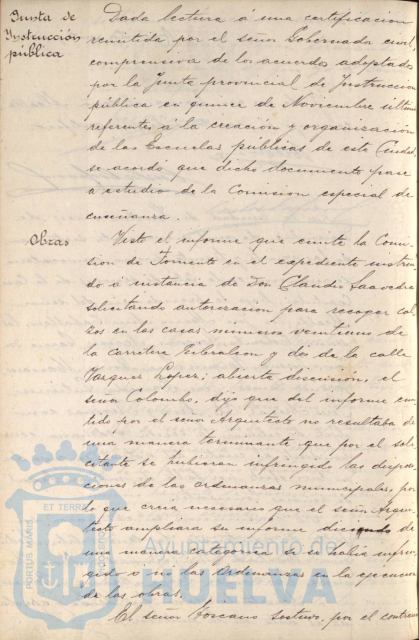 Junta de
Instrucción
pública
Dada lectura á una certificacion
remitida por el señor Gobernador civil,
comprensiva de los acuerdos adoptados
por la Junta provincial de Instruccion
pública en quince de Noviembre último
referentes á la creación y organizacion
de las Escuelas públicas de esta Ciudad
se acordó que dicho documento pase
a estudio de la Comision especial de
enseñanza.
Obras
Visto el informe que emite la Comi-
sion de Fomento en el expediente instrui
do á instancia de Don Claudio Saavedra
solicitando autorizacion para recoger cal
zos en las casas números veintiuno de
la carretera Gibraleon y dos de la calle
Vazquez Lopez; abierta discusion, el
señor Colombo, dijo que del informe emi
tido por el señor Arquitecto no resultaba de
una manera terminante que por el soli
citante se hubieran infringido las disposi
ciones de las ordenanzas municipales, por
lo que creia necesario que el señor Arqui
tecto ampliara su informe diciendo de
una manera categorica si se habia infrin
gido o no las Ordenanzas en la ejecucion
de las obras.
El señor Toscano sostuvo, por el contrario
PORTUS MARIS
ET TERRAE
Ayuntamiento de
HUELVA